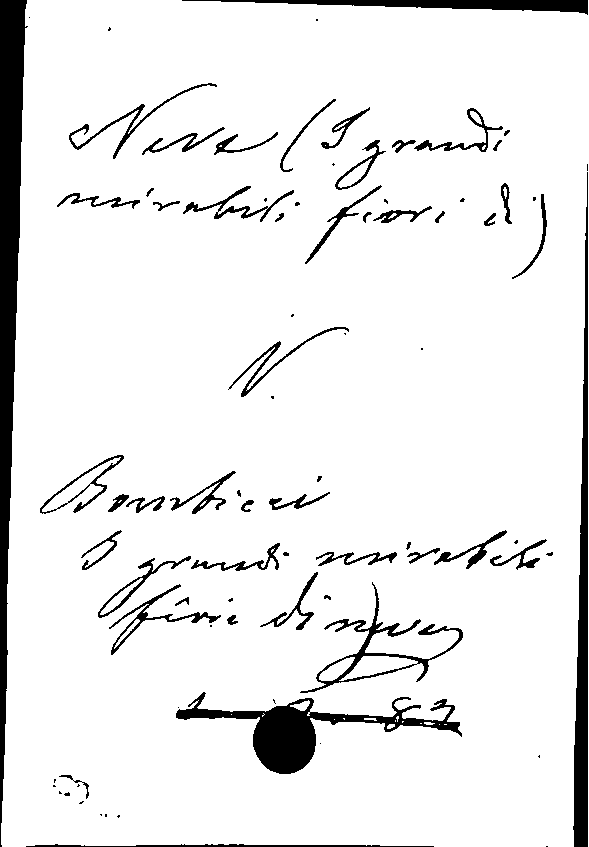 Neve (I grandi
mirabili fiori di)
V.
Bombicci
I grandi mirabili
fiori di neve